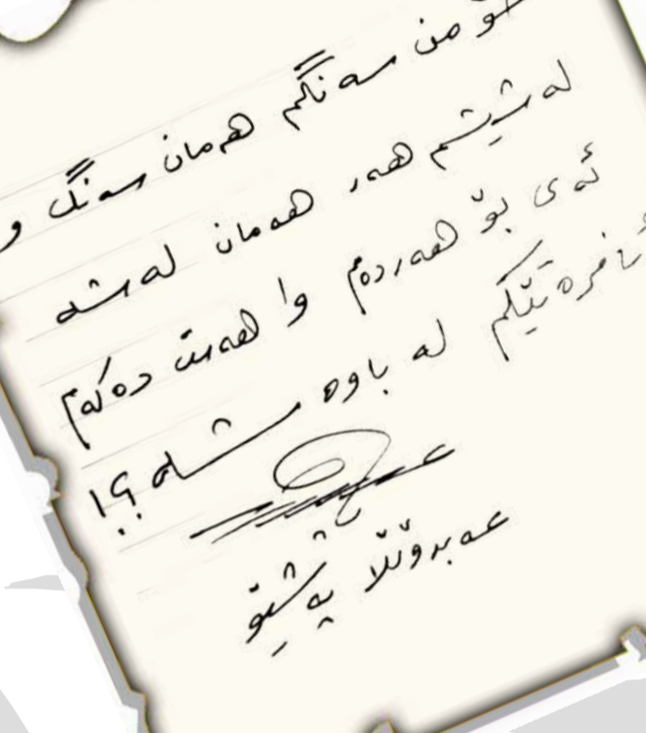 خۆ من سەنگم هەمان سەنگ و
لەشیشم هەر هەمان لەشە
ئەی بۆ هەردەم وا هەست دەکەم
ئافرەتێکم لە باوەشە؟!
عەبدوڵڵا پەشێو